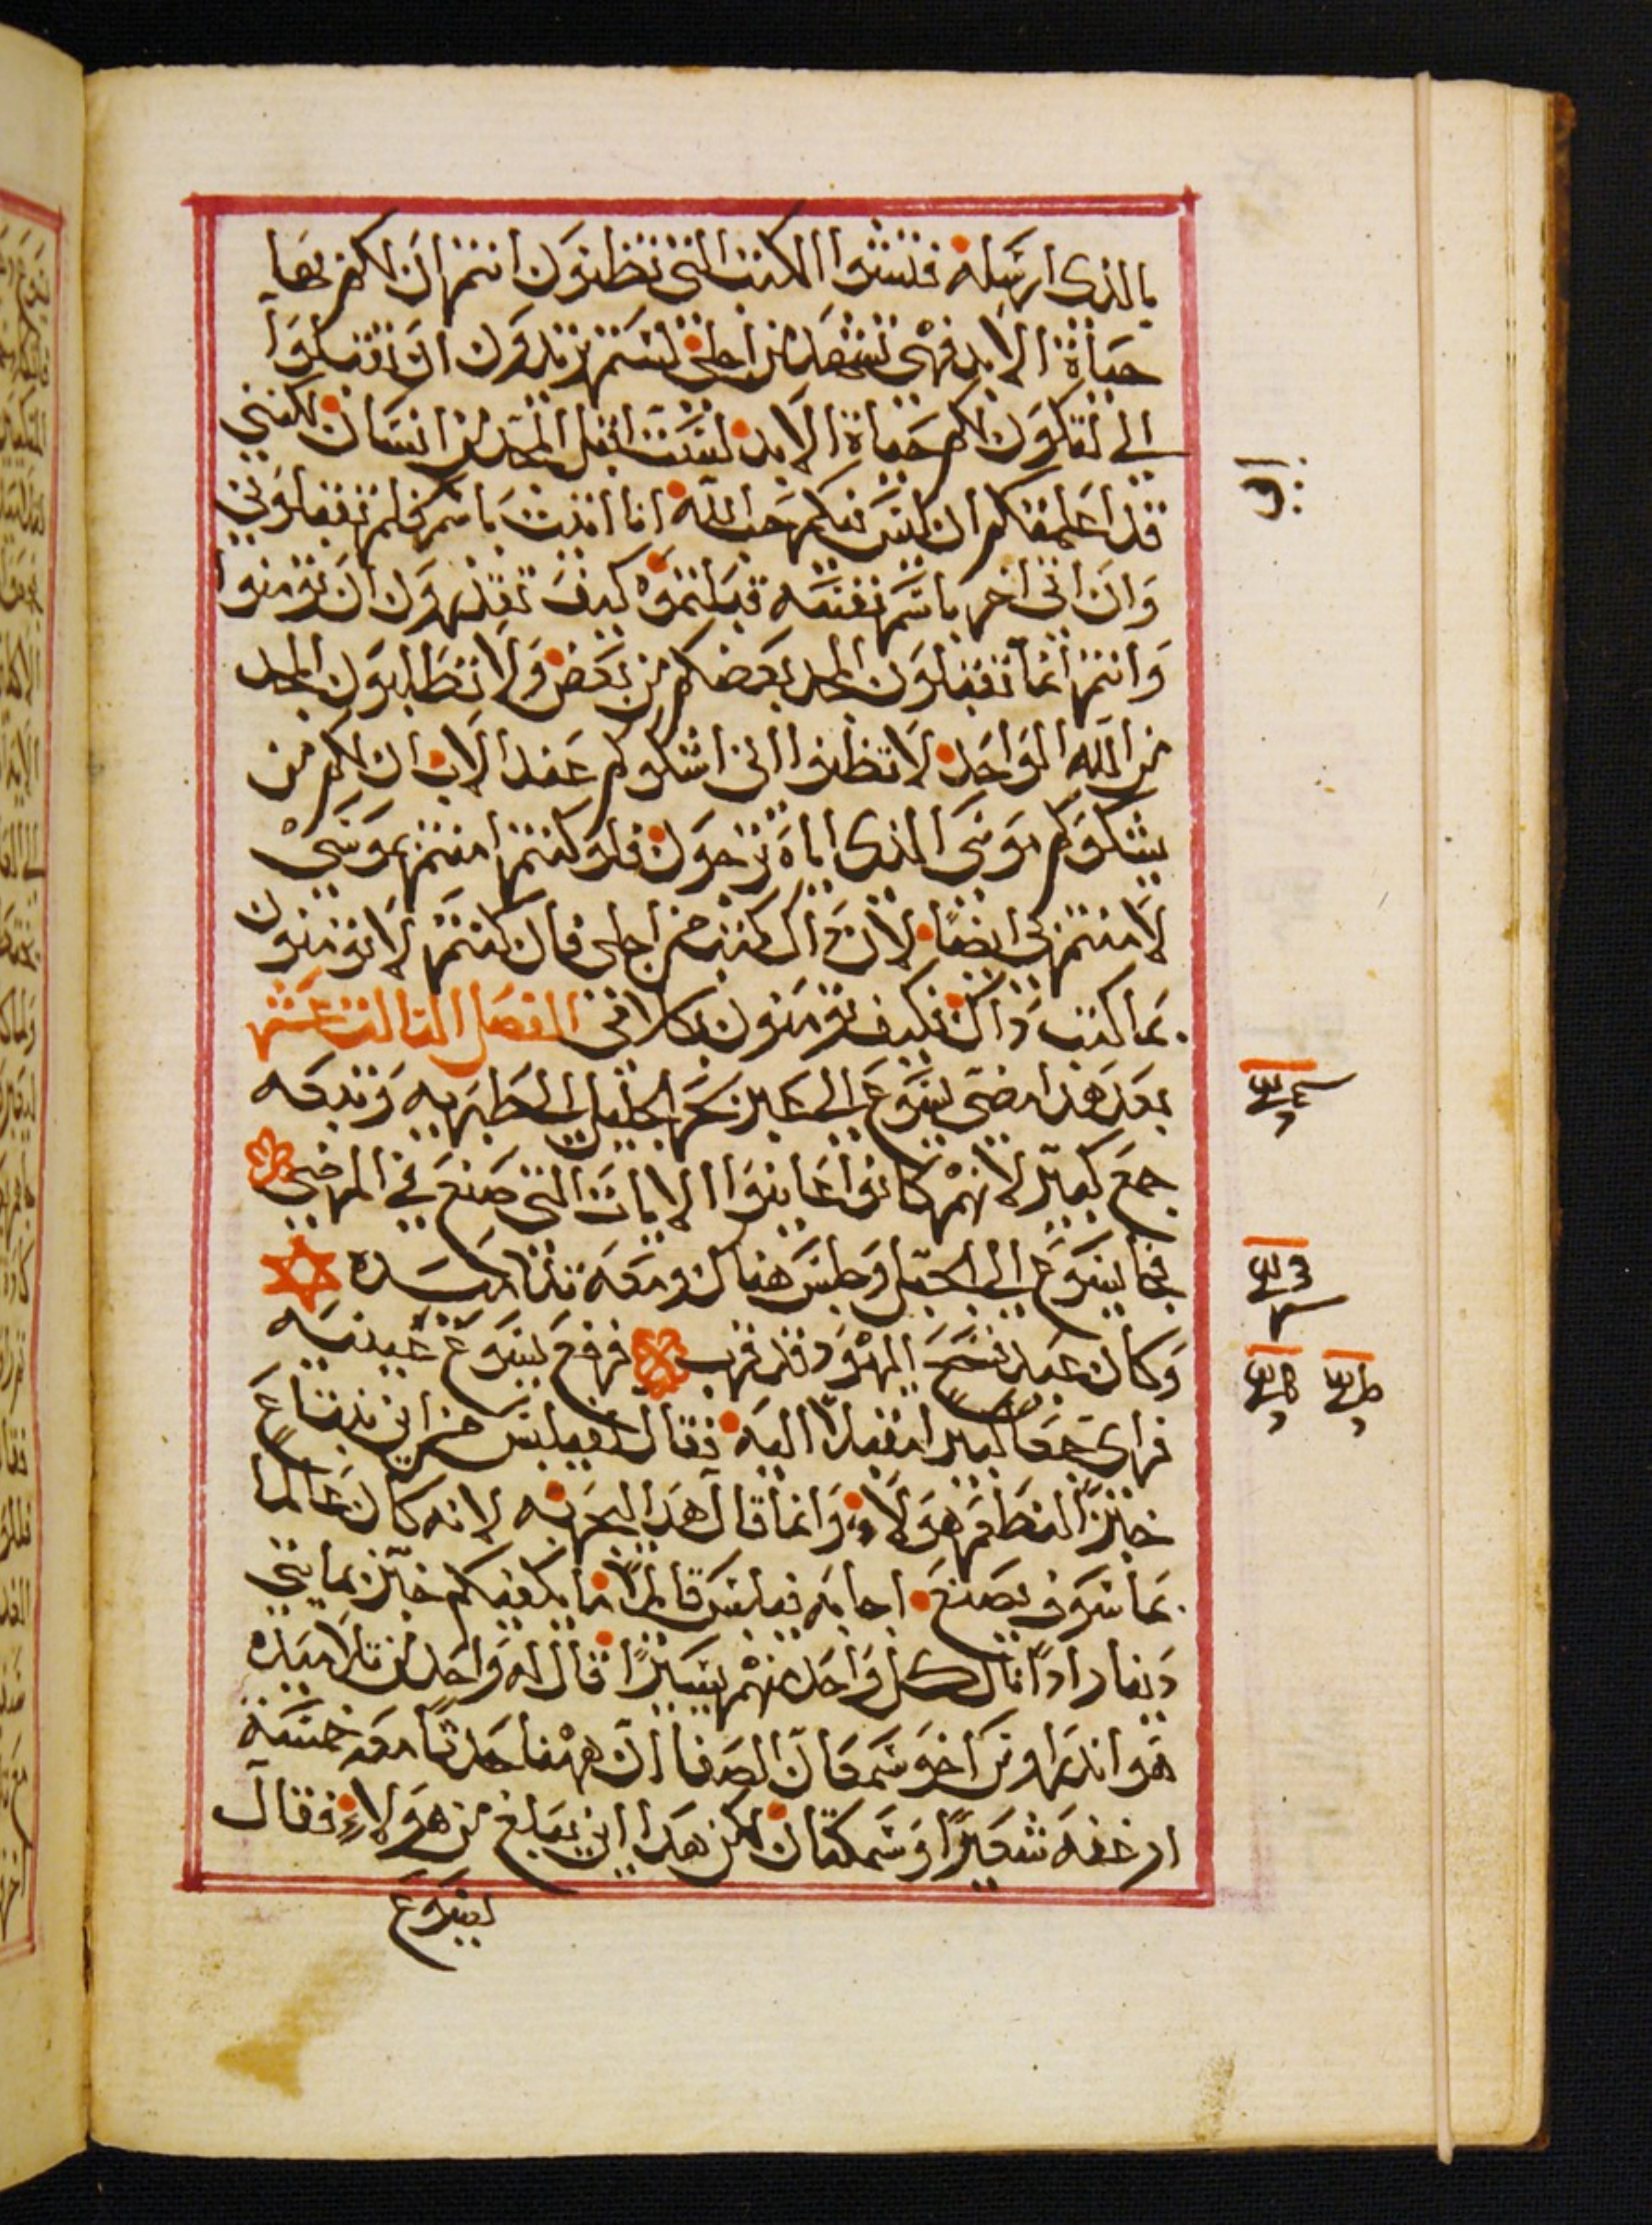 بالذى ارسله فتشوا الكتب التى تظنون انتم ان لكم بها
حياة الابد فهى تشهد من اجلى لستم تريدون ان تقبلوا
الى لتكون لكم حياة الابد لست اقبل المجد من انسان لكننى
قد اعلمتكم ان ليس فيكم حب الله انا اتيت باسم فلم تقبلونى
وان اتى اخر باسم نفسه قبلتموه كيف تقدرون ان تومنوا
وانتم انما تقبلون المجد بعضكم من بعض ولا تطلبون المجد
من الله الواحد لا تظنوا انى اشكوكم عند الاب ان لكم من
يشكوكم موسى الذى اياه ترجون فلو كنتم امنتم بموسى
لامنتم بى ايضا لان ذاك كتب من اجلى فان كنتم لا تومنون
بما كتب ذاك فكيف تومنون بكلامى الفصل الثالث عشر
بعد هذا مضى يسوع الى عبر بحر الجليل الطبريه وتبعه
جمع كبير لانهم كانوا عاينوا الايات التى صنع فى المرضى
فجا يسوع الى الجبل وجلس هناك ومعه تلاميده
وكان عيد فسح اليهود قد قرب فرفع يسوع عينيه
فراى جمعا كبيرا مقبلا اليه فقال لفيلبس من اين نبتاع
خبزا لنطعم هولاء وانما قال هذا ليجربه لانه كان عالما
بما سوف يصنع اجابه فيلبس قائلا ما يكفيكم خبز بمايتى
دينار اذا نال كل واحد منهم يسيرا قال له واحد من تلاميذه
هو اندراوس اخو سمعان الصفا ان ههنا حدثا معه خمسة
ارغفه شعيرا وسمكتان لكن هدا اين يبلغ من هولاء فقال
يسوع